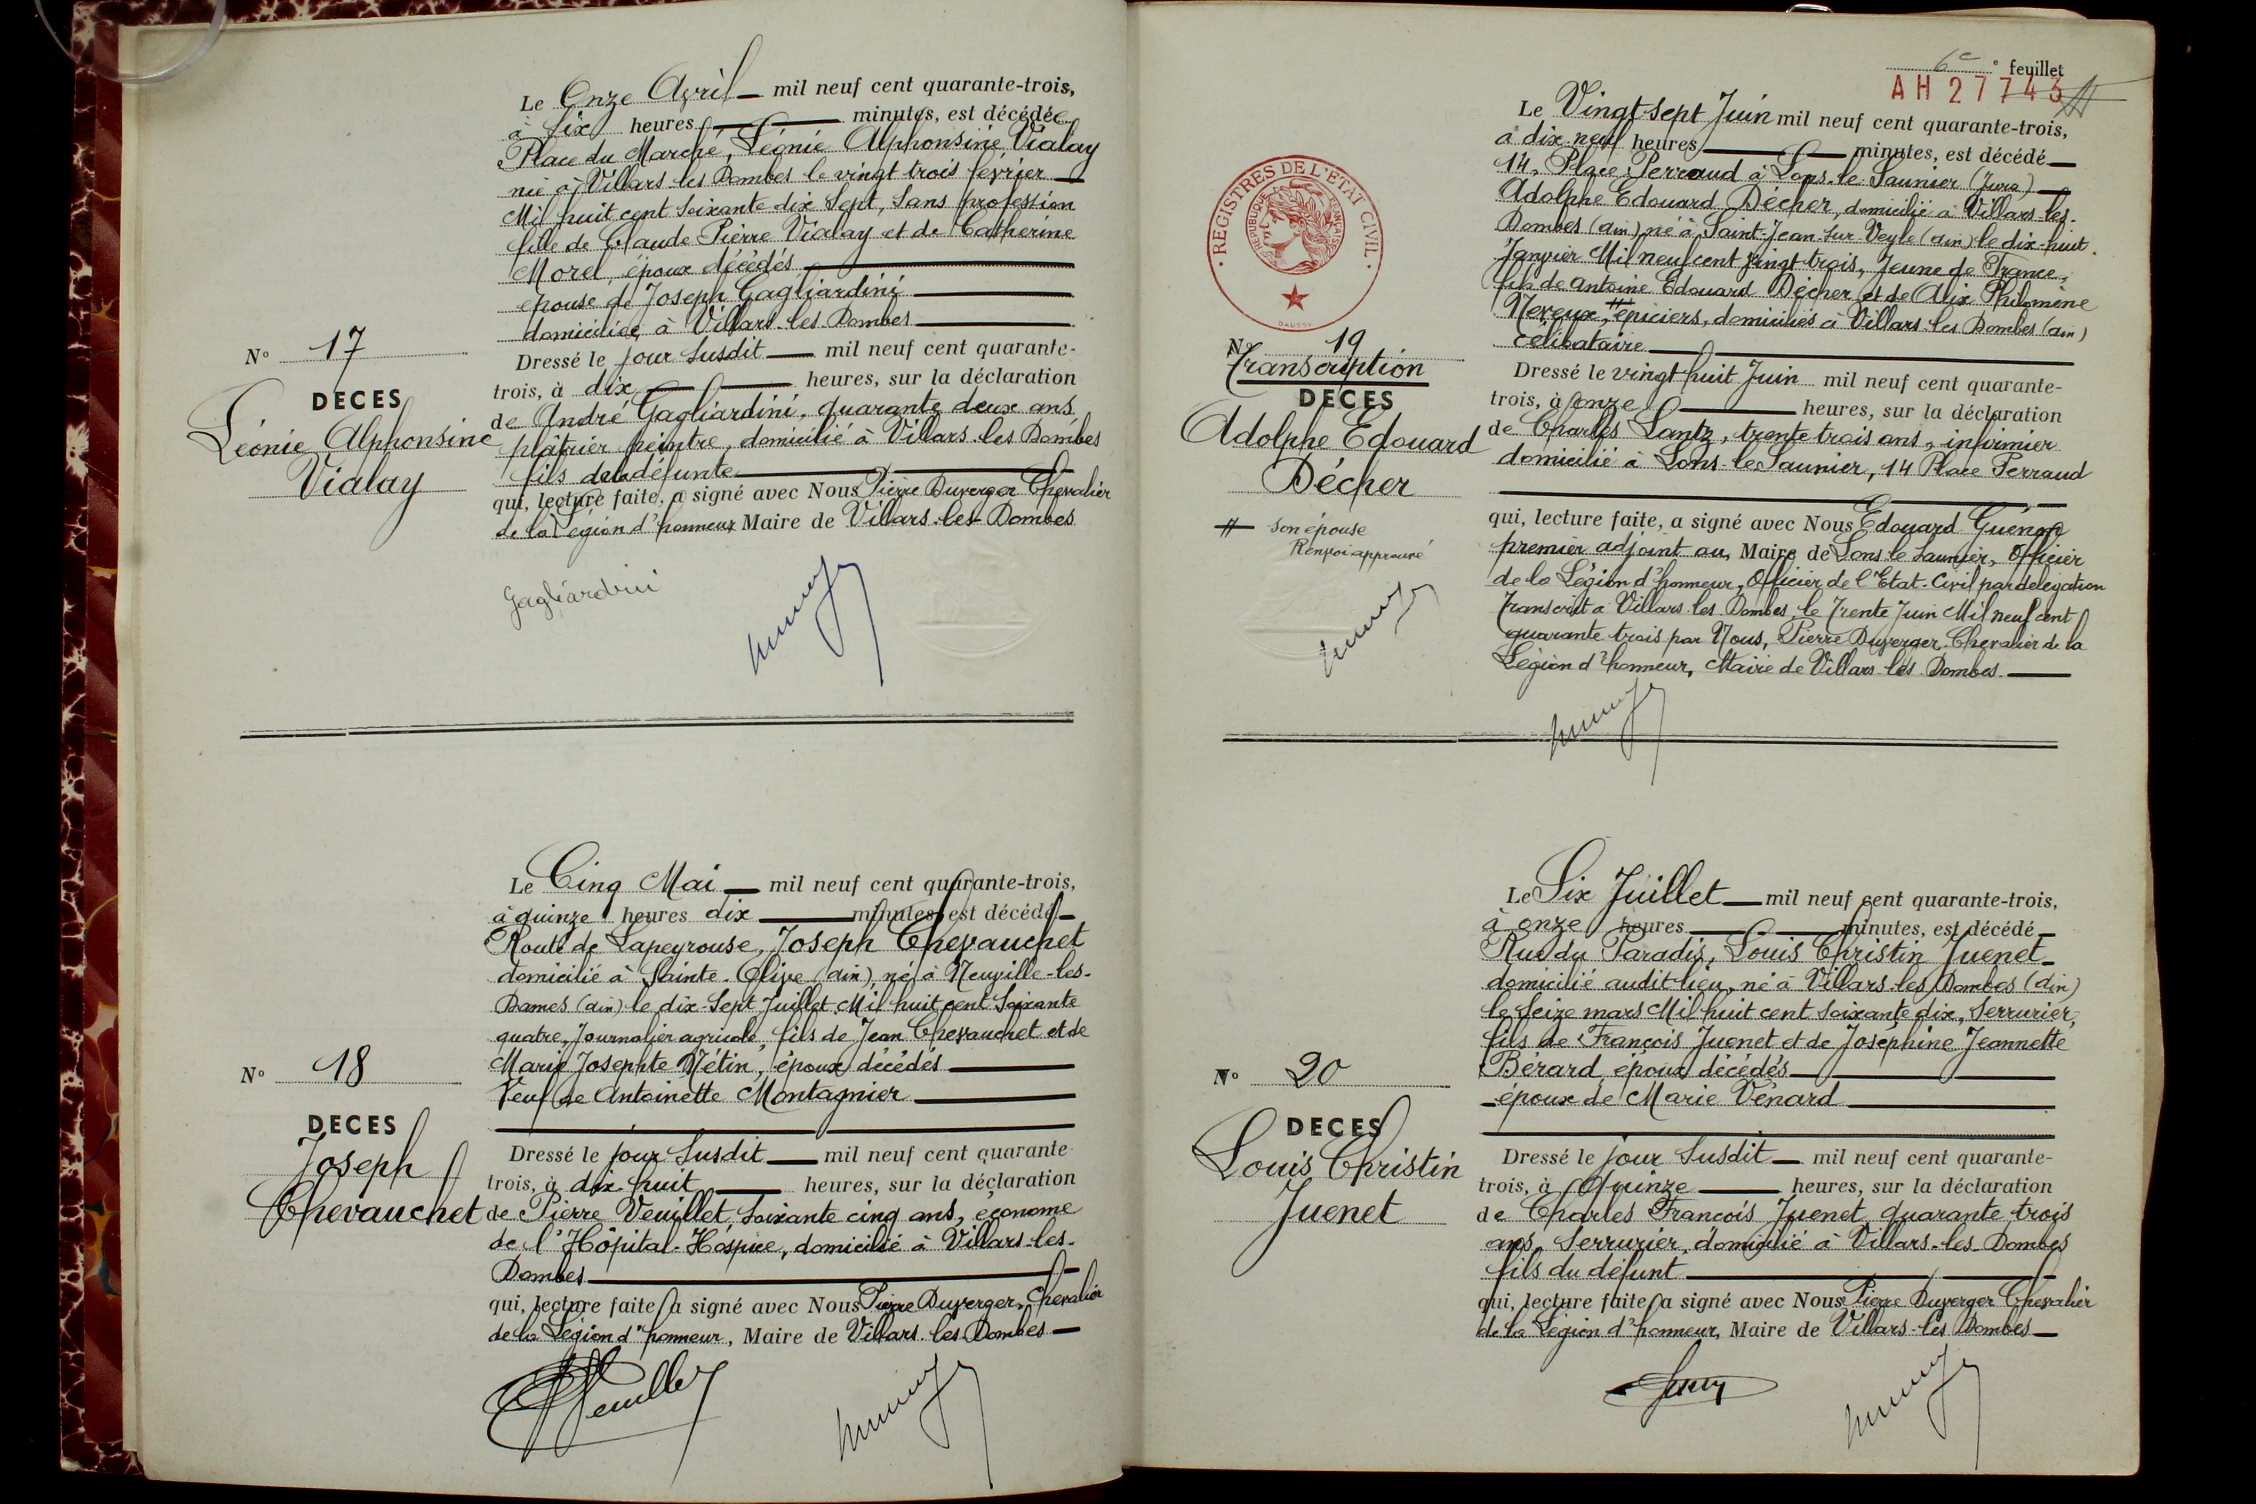 Le Onze Avril — mil neuf cent quarante-trois,
à six heures — minutes, est décédée
Place du Marché, Léonie Alphonsine Vialay
née à Villars-les Dombes le vingt trois février
Mil huit cent soixante dix sept, sans profession
fille de Claude Pierre Vialay et de Catherine
Morel, époux décédés
épouse de Joseph Gagliardini
domiciliée à Villars-les Dombes
N° 17
DECES
Léonie Alphonsine
Vialay
Dressé le jour susdit — mil neuf cent quarante-
trois, à dix — heures, sur la déclaration
de André Gagliardini, quarante deux ans
plâtrier peintre, domicilié à Villars-les Dombes
fils de la défunte
qui, lecture faite, a signé avec Nous Pierre Duverger Chevalier
de la Légion d'honneur Maire de Villars-les-Dombes
Gagliardini
Le Cinq Mai — mil neuf cent quarante-trois,
à quinze heures dix — minutes, est décédé
Route de Lapeyrouse, Joseph Chevauchet
domicilié à Sainte-Olive (ain), né à Neuville-les-
Dames (ain) le dix-sept Juillet Mil huit cent soixante
quatre, Journalier agricole, fils de Jean Chevauchet et de
Marie Josephte Métin, époux décédés
Veuf de Antoinette Montagnier
N° 18
DECES
Joseph
Chevauchet
Dressé le jour susdit — mil neuf cent quarante
trois, à dix huit — heures, sur la déclaration
de Pierre Veuillet, soixante cinq ans, économe
de l'Hôpital-Hospice, domicilié à Villars-les-
Dombes
qui, lecture faite, a signé avec Nous Pierre Duverger, Chevalier
de la Légion d'honneur, Maire de Villars-les Dombes
Veuillet
6e ° feuillet
AH 27743
Le Vingt-sept Juin mil neuf cent quarante-trois,
à dix-neuf heures — minutes, est décédé
14, Place Perraud à Lons-le-Saunier (Jura)
Adolphe Edouard Décher, domicilié à Villars-les-
Dombes (ain) né à Saint-Jean-sur-Veyle (ain) le dix-huit
Janvier Mil neuf cent vingt-trois, Jeune de France,
fils de Antoine Edouard Décher et de Alix Philomène
Nereux, # épiciers, domiciliés à Villars-les Dombes (ain)
célibataire
REGISTRES DE L'ETAT CIVIL
REPUBLIQUE FRANÇAISE
N° 19
Transcription
DECES
Adolphe Edouard
Décher
# son épouse
Renvoi approuvé
Dressé le vingt-huit Juin mil neuf cent quarante-
trois, à onze — heures, sur la déclaration
de Charles Lantz, trente trois ans, infirmier
domicilié à Lons-le Saunier, 14 Place Perraud
qui, lecture faite, a signé avec Nous Edouard Guenon
premier adjoint au Maire de Lons le Saunier, Officier
de la Légion d'honneur, Officier de l'Etat-Civil par délégation
Transcrit à Villars-les-Dombes le Trente Juin Mil neuf cent
quarante trois par Nous, Pierre Duverger, Chevalier de la
Légion d'honneur, Maire de Villars-les Dombes.
Le Six Juillet — mil neuf cent quarante-trois,
à onze heures — minutes, est décédé
Rue du Paradis, Louis Christin Juenet
domicilié audit-lieu, né à Villars-les Dombes (ain)
le seize mars Mil huit cent soixante dix, Serrurier,
fils de François Juenet et de Joséphine Jeannette
Bérard, époux décédés
époux de Marie Vénard
N° 20
DECES
Louis Christin
Juenet
Dressé le jour susdit — mil neuf cent quarante-
trois, à Quinze — heures, sur la déclaration
de Charles François Juenet, quarante trois
ans, Serrurier, domicilié à Villars-les-Dombes
fils du défunt
qui, lecture faite, a signé avec Nous Pierre Duverger Chevalier
de la Légion d'honneur, Maire de Villars-les Dombes